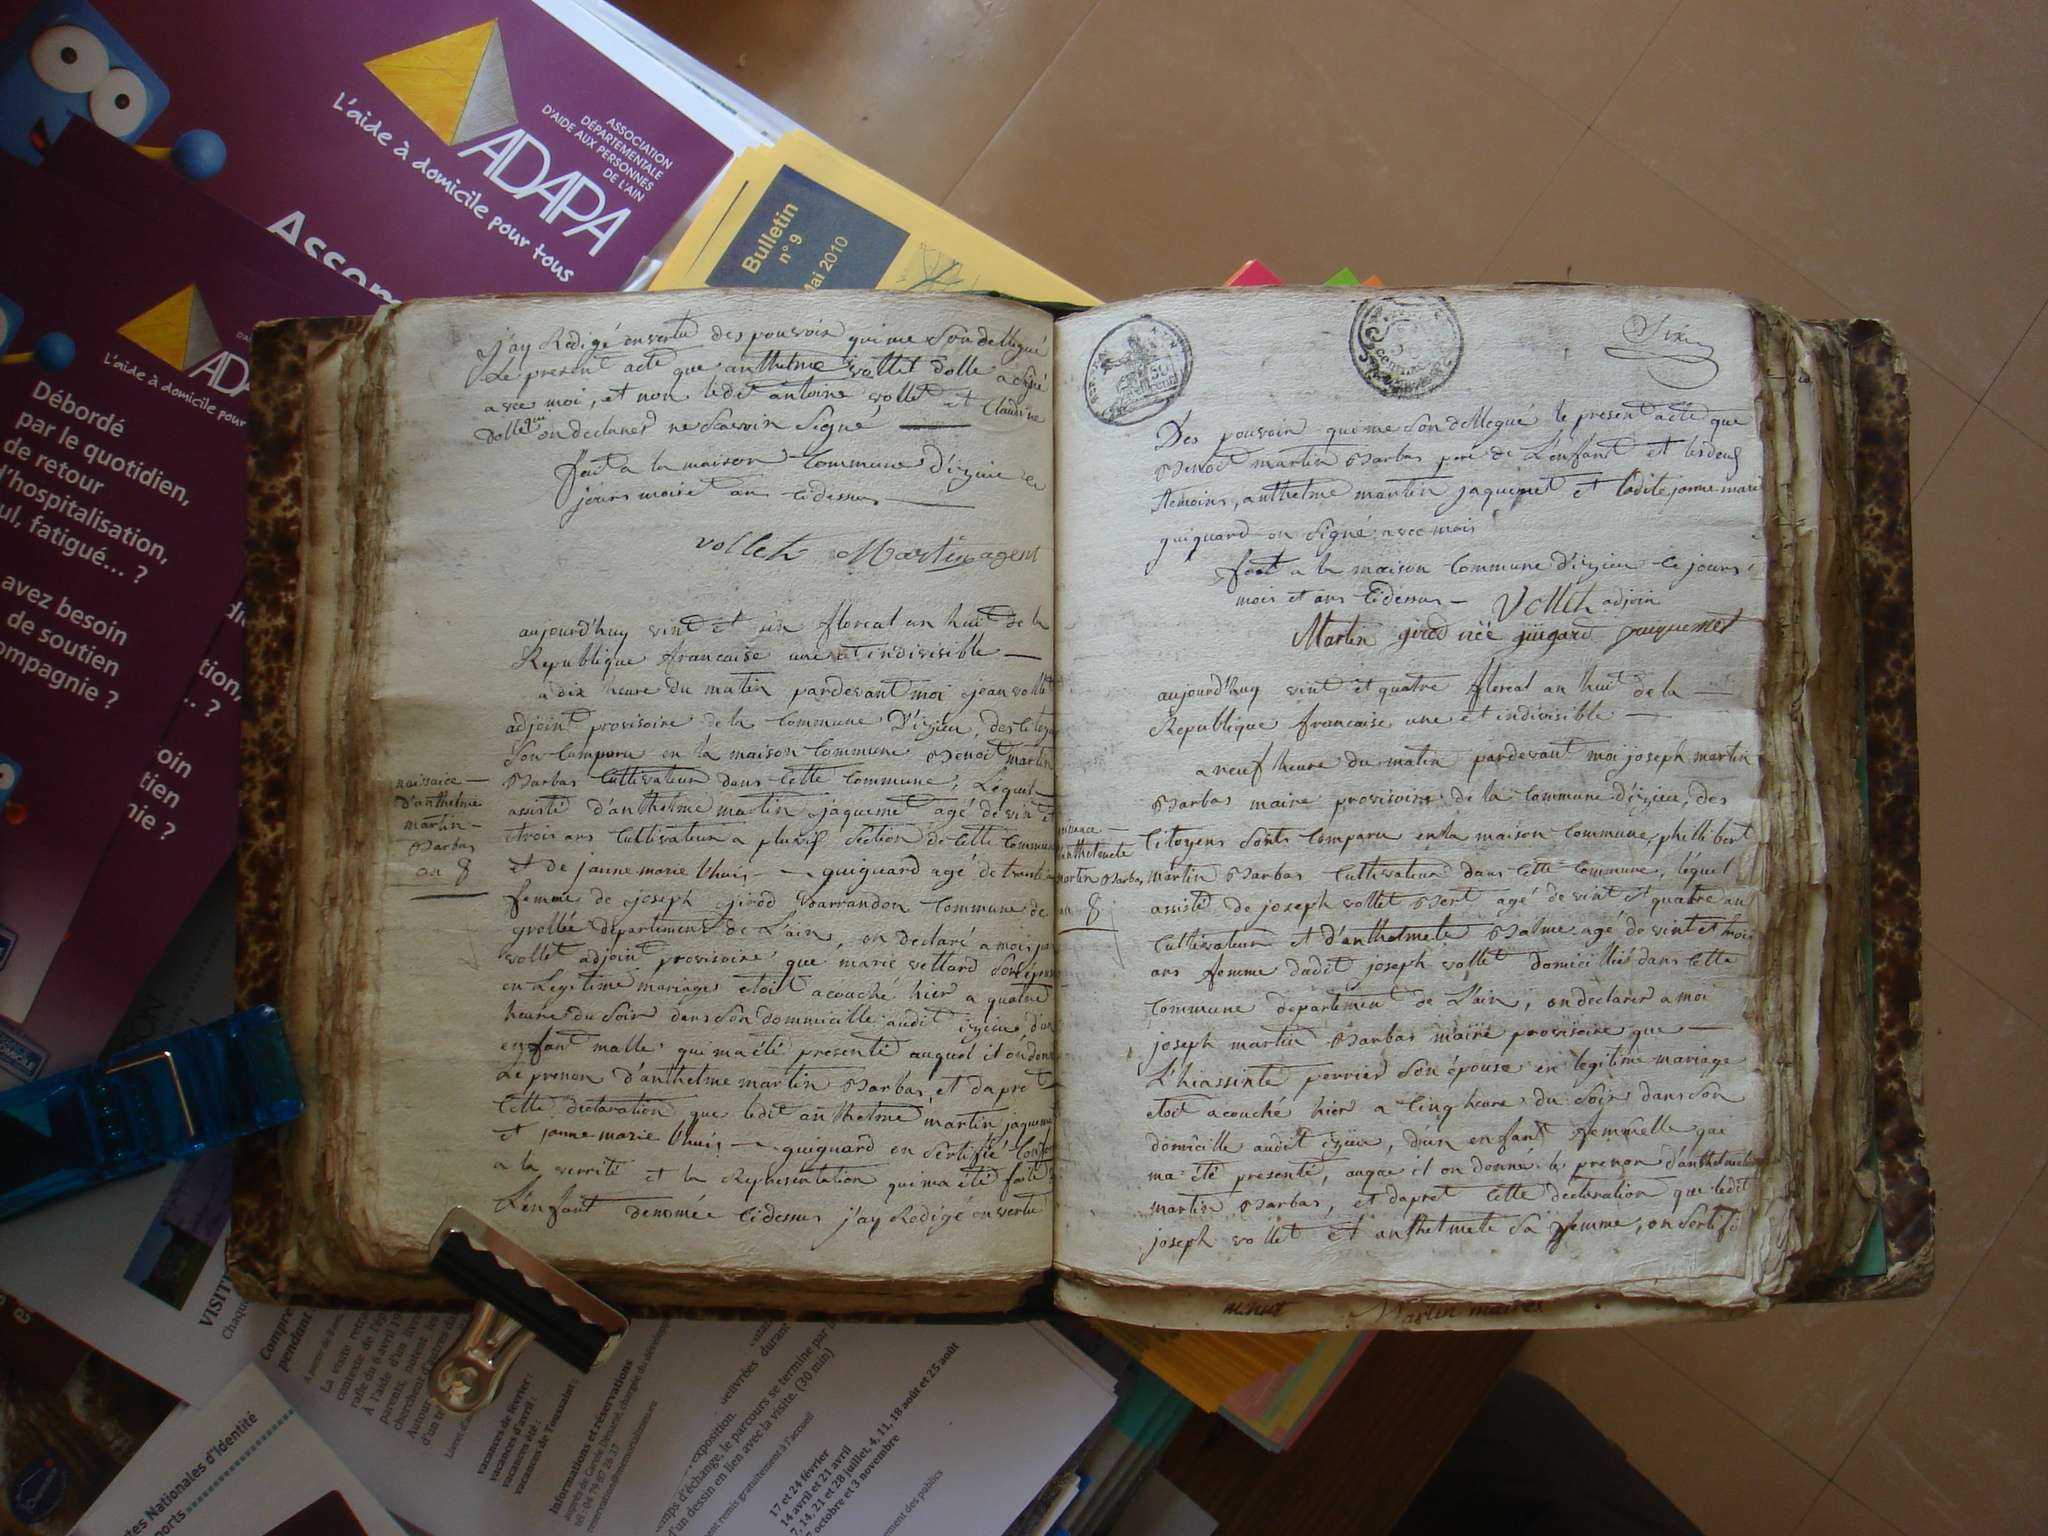 L'aide à domicile pour tous
ADAPA
ASSOCIATION
DÉPARTEMENTALE
D'AIDE AUX PERSONNES
DE L'AIN
Assom
Bulletin
n° 9
Mai 2010
L'aide à domicile pour
ADA
Débordé
par le quotidien,
de retour
d'hospitalisation,
ul, fatigué... ?
avez besoin
de soutien
ompagnie ?
tion,
.. ?
oin
tien
nie ?
j'ay Redigé en vertu des pouvoir qui me Son dellegué
Le present acte que anthelme vollet dolle a signé
avec moi, et non ledit antoine vollet et Claudine
dolle qui on declarer ne Scavoir Signé
fait a la maison Commune d'izieu les
jours mois et an cidessus
vollet Martin agent
aujourd'huy vint et un floreal an huit de la
Republique francaise une et indivisible
a dix heure du matin pardevant moi jean vollet
adjoint provisoire de la Commune D'izieu, des Citoyen
Son Comparu en la maison Commune Benoit martin
Barbas Cultivateur dans Cette Commune, Lequel
assisté d'anthelme martin jaquemet agé de vint et
trois ans Cultivateur a Section de Cette Commune
et de janne marie Thuis guiguard agé de trente
femme de joseph girod Commune de
grollée departement de L'ain, on declaré a moi jean
vollet adjoint provisoire que marie vettard Son épouse
en Legitime mariage etoit acouché hier a quatre
heure du Soir dans Son dommicille audit izieu, d'un
enfant malle qui ma été presenté auquel il on donné
Le prenon d'anthelme martin Barbas, et dapret
Cette declaration que ledit anthelme martin jaquemet
et janne marie Thuis guiguard on Sertifié Conforme
a la verrité et la Representation qui ma été faite de
L'enfant denomée Cidessus j'ay Redigé en vertu
naissance
d'anthelme
martin
Barbas
an 8
Six
Des pouvoir qui me Son dellegué le present acte que
Benoit martin Barbas pere de L'enfant et les deux
temoins, anthelme martin jaquemet et ladite janne marie
guiguard on Signé avec moi
fait a la maison Commune d'izieu le jours
mois et ans Cidessus Vollet adjoin
Martin girod née guigard jacquemet
aujourd'huy vint et quatre floreal an huit de la
Republique francaise une et indivisible
a neuf heure du matin pardevant moi joseph martin
Barbas maire provisoire de la Commune d'izieu, des
Citoyens Sonts Comparu en la maison Commune, phillibert
martin Barbas Cultivateur dans Cette Commune, léquel
assisté de joseph vollet Bert agé de vint et quatre an
Cultivateur et d'anthelmete Balme agé de vint et trois
ans femme dudit joseph vollet domicillié dans Cette
Commune departement de L'ain, on declarer a moi
joseph martin Barbas maire provisoire que
L'hiassinte perrier Son épouse en legitime mariage
etoit acouché hier a Cinq heure du Soir dans Son
domicille audit izieu, d'un enfant femmelle qui
ma été presenté, auque il on donné le prenon d'anthelmete
martin Barbas, et dapret Cette declaration que ledit
joseph vollet et anthelmete Sa femme, on Sertifié
anthelmete
martin Barbas
an 8
Martin maire
VISIT
Chaque
Compre
pendant
vacances de février :
vacances d'avril :
vacances été :
vacances de Toussaint :
Informations et réservations
auprès de Carole Dénarié, chargée du développement
tél : 04 79 87 26 37
exposition.
d'échange, le parcours se termine par
d'un dessin en lien avec la visite. (30 min)
remis gratuitement à l'accueil
17 et 24 février
14 avril et 21 avril
7, 14, 21 et 28 juillet, 4, 11, 18 août et 25 août
octobre et 3 novembre
ement des publics
tes Nationales d'Identité
ports